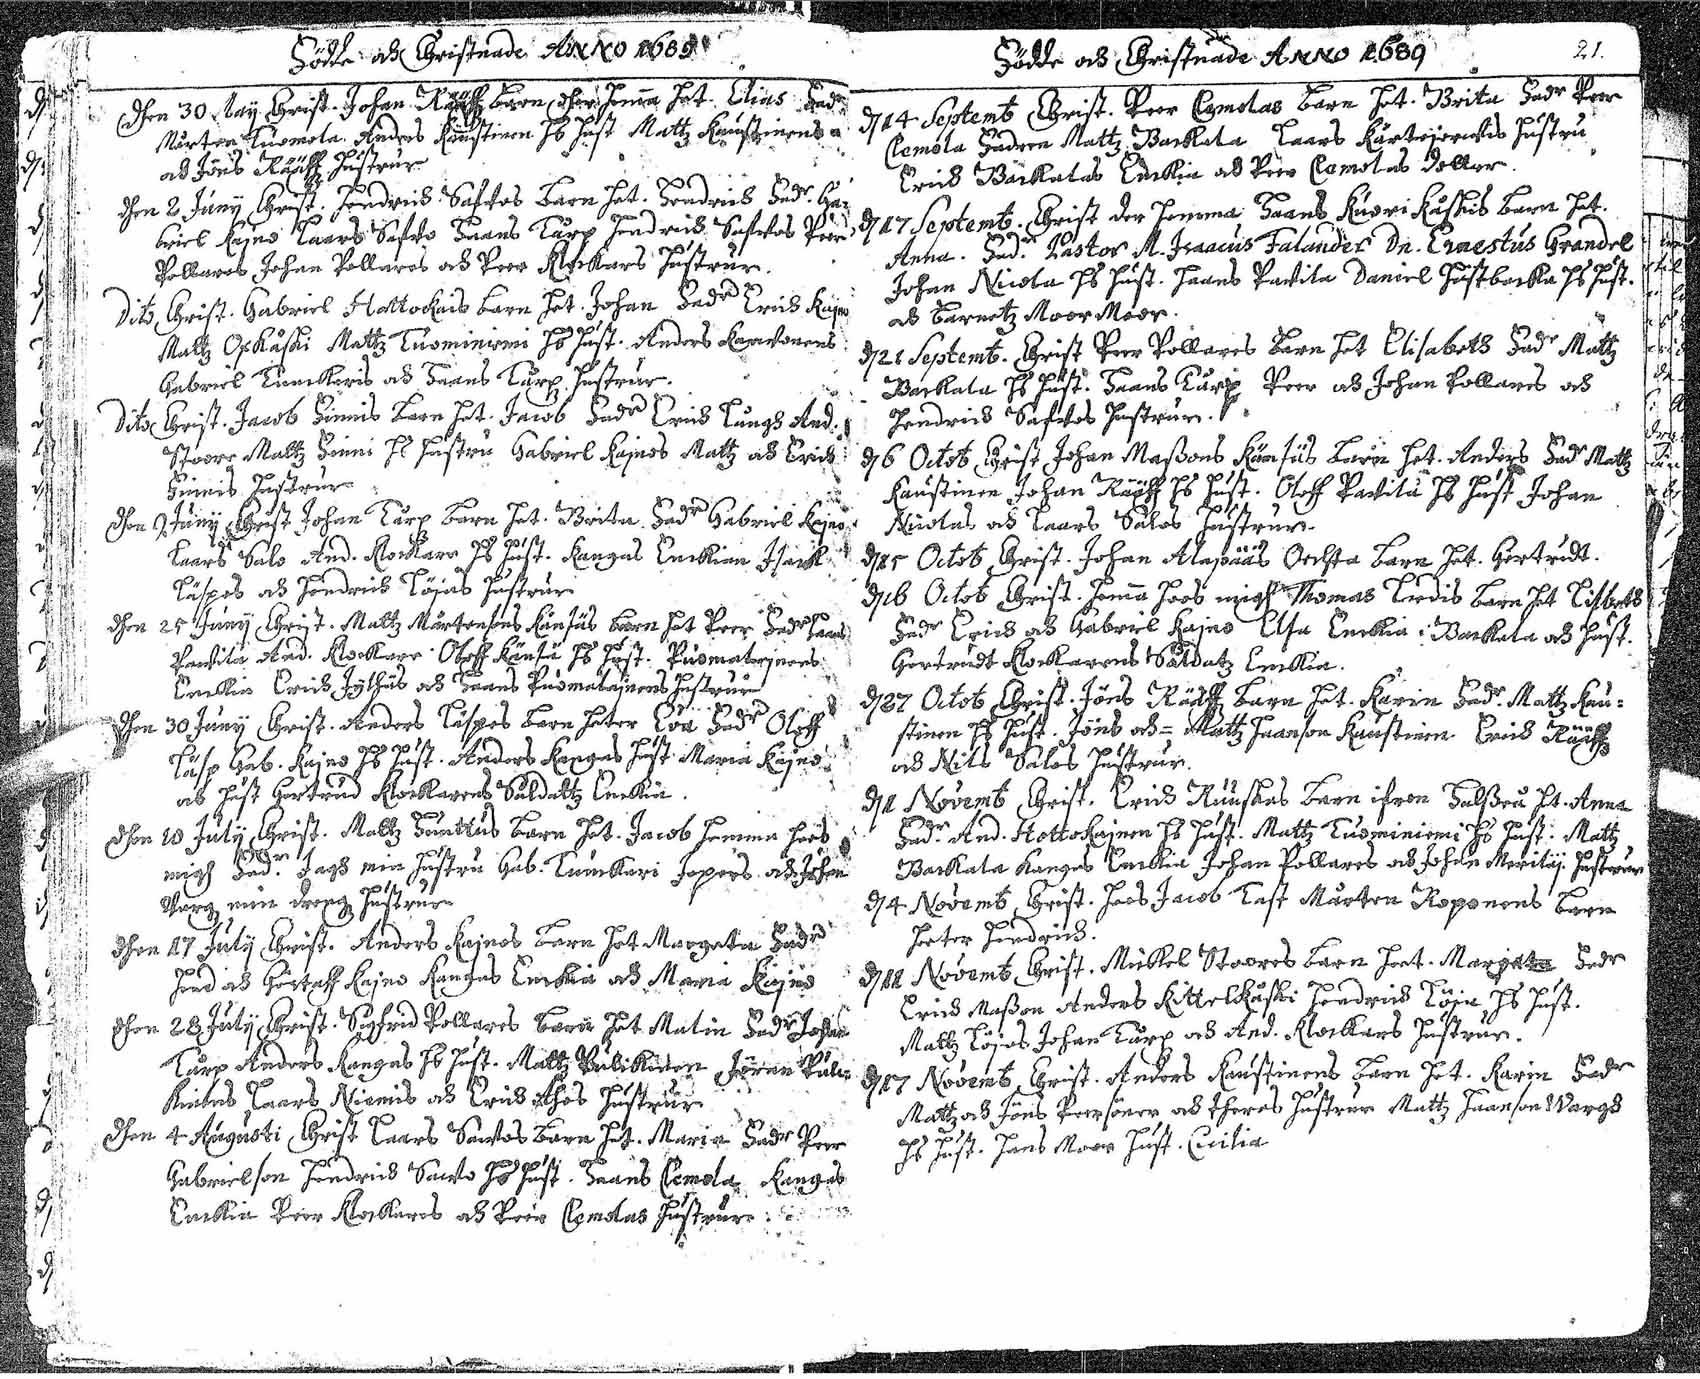 Födde och Christnade ANNO 1689
dhen 30 May Christ. Johan Rääff barn dher hema het. Elias Fadr
Mårten Tuomola Anders Kaustinen Hs Hust Mattz Kaustinens
och Jöns Rääffz Hustrur
dhen 2 Juny Christ. Hendrich Saftos barn het. Hendrich Fadr. Ga-
briel Kajno Laars Safto Haans Turp Hendrich Saftos Peer
Pollares Johan Pollares och Peer Klockars Hustrur.
Dito Christ. Gabriel Hottokais barn het. Johan Fadr Erich Kajno
Mattz Ofkaski Mattz Tuominiemi Hs Hust. Anders Karvonens
Gabriel Tunckaris och Haans Turp Hustrur.
Dito Christ. Jacob Finnis barn het. Jacob Fadr Erich Lungh And.
Stoore Mattz Finni Hs Hustru Gabriel Kajnos Mattz och Erich
Finnis Hustrur
dhen 9 Juny Christ Johan Turp barn het. Brita Fadr Gabriel Kajno
Laars Salo And. Klockare Hs Hust. Kangas Enckian Isack
Läspes och Hendrich Töjas Hustrur
dhen 25 Juny Christ. Mattz Mårtensons Känsäs barn het Peer Fadr Haans
Pavita And. Klockare Oloff Känsä Hs Hust. Puomatajnens
Enckia Erich Jythäs och Haans Puomatajnens Hustrur
dhen 30 Juny Christ. Anders Läspes barn heter Eva Fadr Oloff
Läsp Gab. Kajno Hs Hust. Anders Kangas Hust Maria Kajno
och Hust Gertrud Klockarens Saldattz Enckia.
dhen 10 July Christ. Mattz Huattus barn het. Jacob hemma hoos
migh Fadr. Jagh min Hustru Gab. Tunckari Jopers och Johan
Warg min drengz Hustrur
dhen 17 July Christ. Anders Kajnos barn het Margeta Fadr
Hend och Göstaff Kajno Kangas Enckia och Maria Kajno
dhen 28 July Christ. Sigfrid Pollares barn het Malin Fadr Johan
Turp Anders Kangas Hs Hust. Mattz Pulikinen Jöran Puli-
kintus Laars Niemis och Erich Ahos Hustrur
dhen 4 Augusti Christ Laars Savos barn het. Maria Fadr Peer
Gabrielson Hendrich Savo Hs Hust. Haans Clemola Kangas
Enckia Peer Klockares och Peer Clemolas Hustrur
Födde och Christnade ANNO 1689
21.
d 14 Septemb Christ. Peer Clemolas barn het. Brita Fadr Peer
Clemola Fadren Mattz Backala Laars Kärtejerwis Hustru
Erich Backalas Enckia och Peer Clemolas dotter.
d 17 Septemb. Christ der hemma Haans Kuorikoskis barn het.
Anna. Fadr. Pastor M. Isaacus Falander Dn. Ernestus Grandel
Johan Nicola Hs Hust. Haans Pavita Daniel Hästbacka Hs Hust.
och barnetz Moor Moor.
d 21 Septemb. Christ Peer Pollares barn het Elisabeth Fadr Mattz
Backala Hs Hust. Haans Turp Peer och Johan Pollares och
Hendrich Saftos Hustrur.
d 6 Octob Christ Johan Maßons Känsäs barn het. Anders Fadr Mattz
Kaustinen Johan Rääff Hs Hust. Oloff Pavita Hs Hust Johan
Nicolas och Laars Salos Hustrur.
d 15 Octob Christ. Johan Alapääs Oechta barn het. Gertrudt.
d 16 Octob Christ. hema hoos migh Thomas Lerdis barn het Lisbeth
Fadr Erich och Gabriel Kajno Elsa Enckia Backala och Hust.
Gertrudt Klockarens Saldatz Enckia.
d 27 Octob Christ. Jöns Rääff barn het. Karin Fadr. Mattz Kau-
stinen Hs Hust. Jöns och Mattz Haanson Kaustinen Erich Rääffz
och Nils Salos Hustrur.
d 1 Novemb Christ. Erich Ruuskas barn ifron Halßeu het. Anna
Fadr. And. Hottokajnen Hs Hust. Mattz Tuominiemi Hs Hust. Mattz
Backala Kangas Enckia Johan Pollares och Johan Meritäj Hustrur
d 4 Novemb Christ. hoos Jacob Tast Mårten Roponens barn
heter Hindrich.
d 11 Novemb Christ. Mickel Stoores barn heet. Margeta Fadr
Erich Maßon Anders Kittelkåski Hendrich Töja Hs Hust.
Mattz Töjos Johan Turp och And. Klockars Hustrur.
d 17 Novemb Christ. Anders Kaustinens barn het. Karin Fadr
Mattz och Jöns Peersöner och theres Hustrur Mattz Haanson Wargh
Hs Hust. Hans Moor Hust. Cicilia